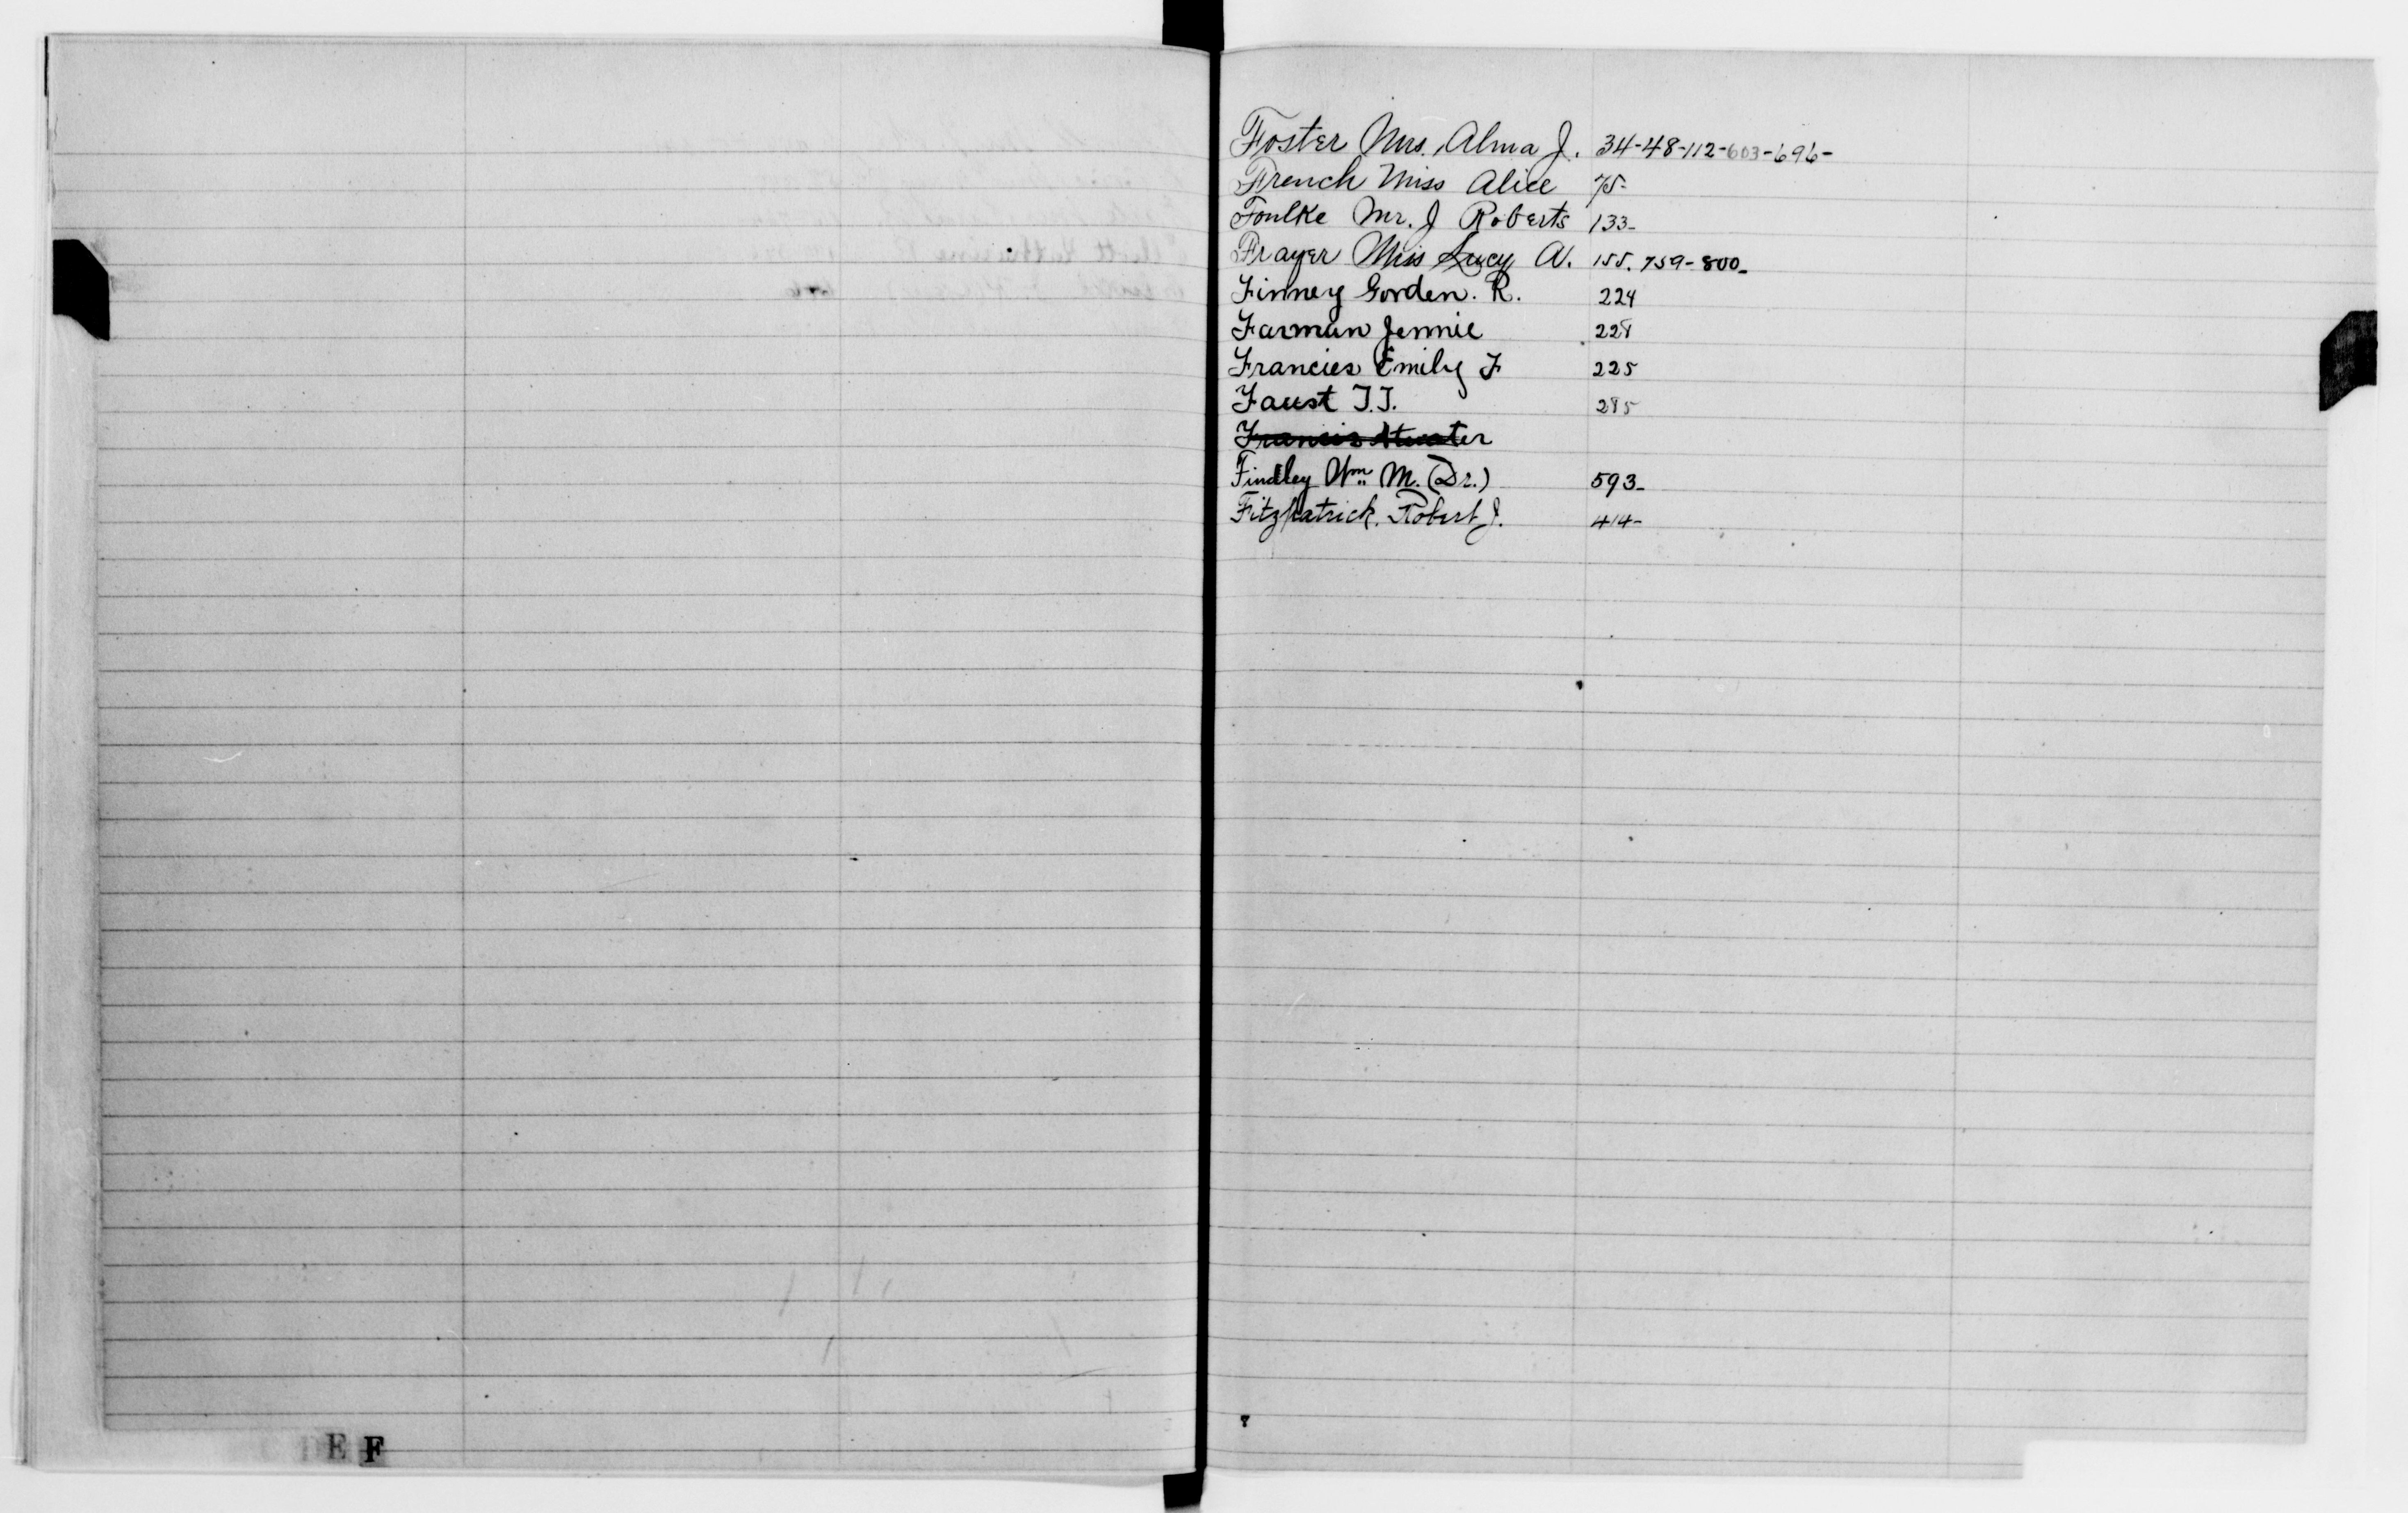 Foster Mrs. Alma J. 34-48-112-603-696-
French Miss Alice 75-
Foulke Mr. J Roberts 133-
Frayer Miss Lucy A. 155. 759-800-
Finney Gorden. R. 224
Farman Jennie 228
Francies Emily F 225
Faust T.J. 285
Francis Atwater
Findley Wm. M. (Dr.) 593-
Fitzpatrick. Robert J. 414-
E F